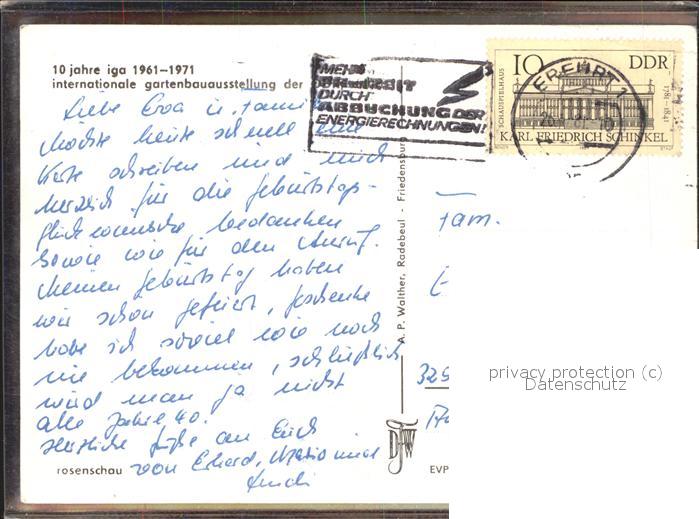 10 jahre iga 1961–1971
internationale gartenbauausstellung der
MEHR
DURCH
ABBUCHUNG DER
ENERGIERECHNUNGEN!
10 DDR
SCHAUSPIELHAUS
1781–1841
KARL FRIEDRICH SCHINKEL
ERFURT 1
Liebe Eva u. Fami
Möchte heute schnell eine
Karte schreiben und mich
herzlich für die Geburtstags-
glückwünsche bedanken
sowie wie für den Anruf.
Meinen Geburtstag haben
wir schön gefeiert, Geschenke
habe ich soviel wie noch
nie bekommen, schließlich
wird man ja nicht
alle Jahre 40.
Herzliche Grüße an Euch
von Erhard, Mario und
rosenschau
A. P. Walther, Radebeul - Friedensburg
Fam.
325
EVP
privacy protection (c)
Datenschutz